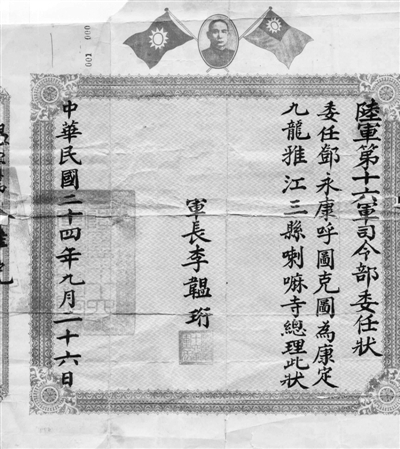 陸軍第十六軍司令部委任狀
委任鄧永康呼圖克圖為康定
九龍雅江三縣喇嘛寺總理此狀
軍長李韞珩
中華民國二十四年九月二十六日
001
000